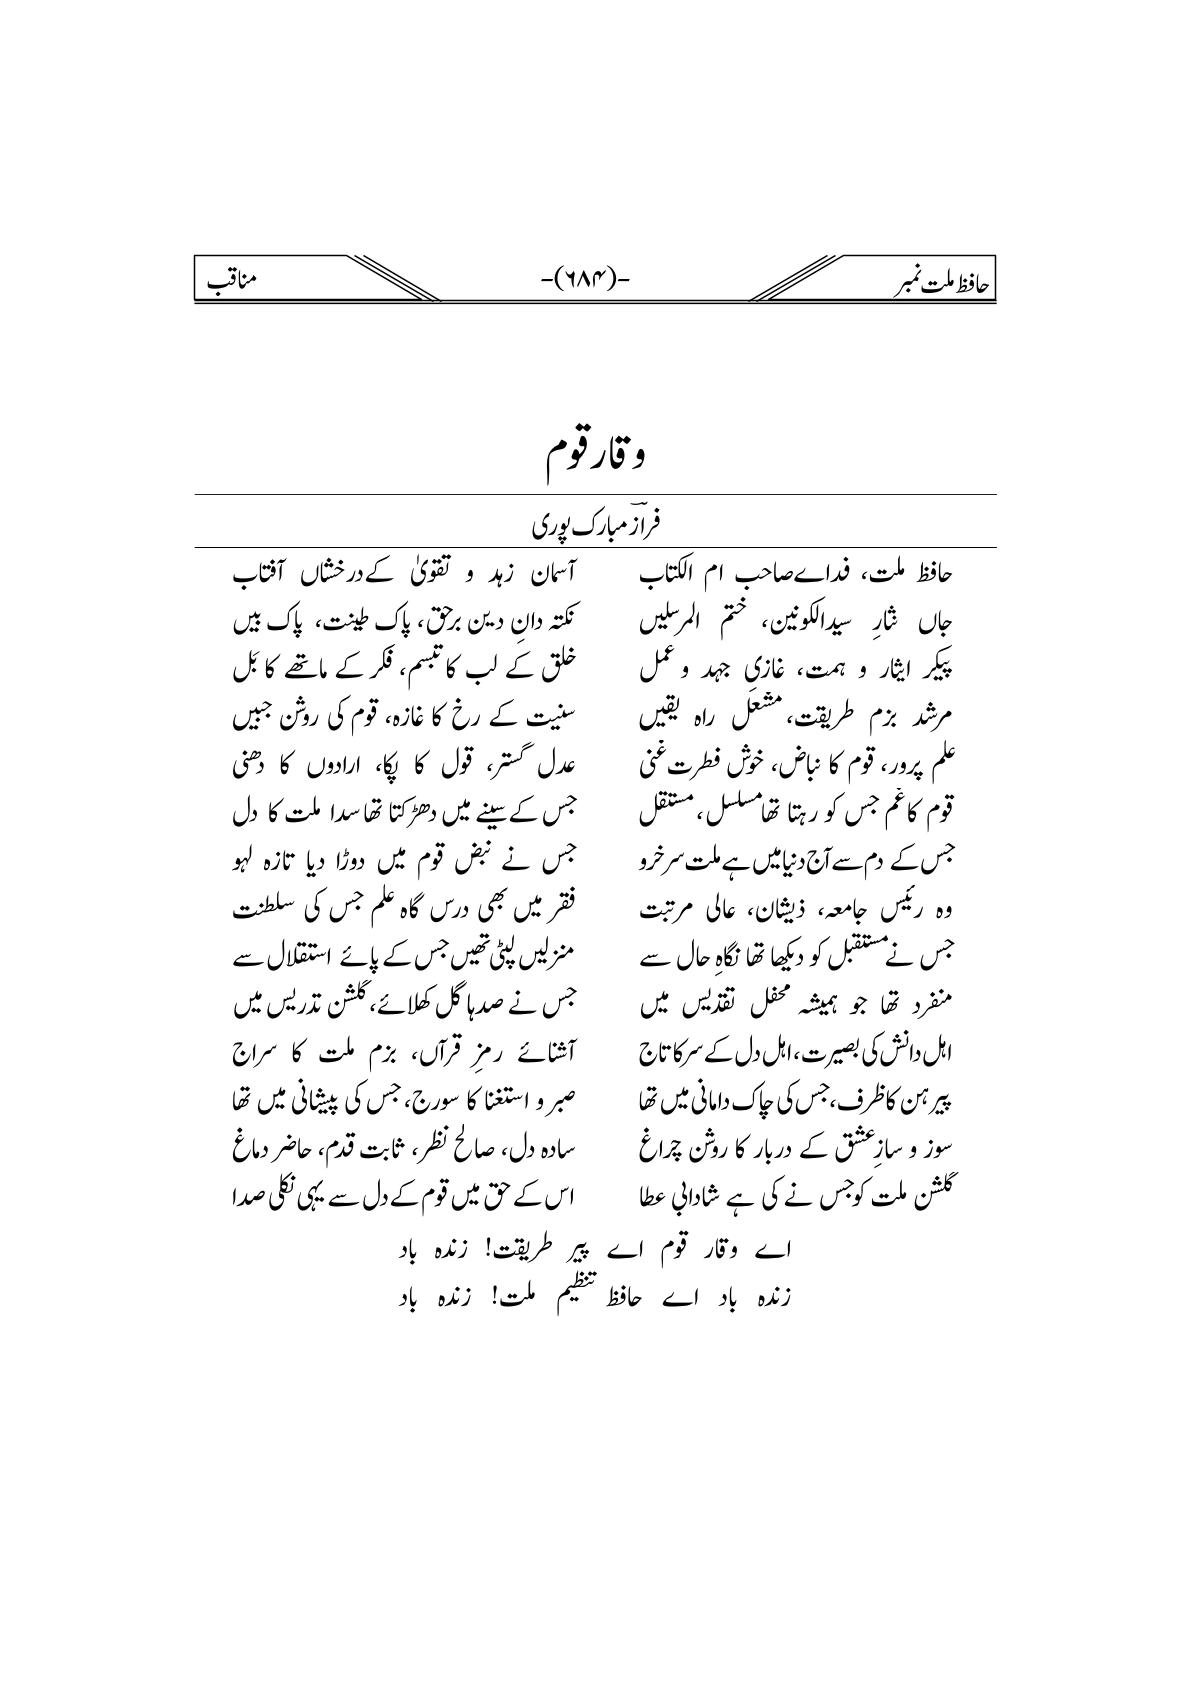 حافظ ملت نمبر -(۶۸۴)- مناقب
وقار قوم
فرازؔ مبارک پوری
حافظ ملت، فداے صاحب ام الکتاب آسمان زہد و تقویٰ کے درخشاں آفتاب
جاں نثارِ سیدالکونین، ختم المرسلیں نکتہ دانِ دین برحق، پاک طینت، پاک بیں
پیکر ایثار و ہمت، غازیِ جہد و عمل خلق کے لب کا تبسم، فکر کے ماتھے کا بَل
مرشد بزم طریقت، مشعلِ راہ یقیں سنیت کے رخ کا غازہ، قوم کی روشن جبیں
علم پرور، قوم کا نباض، خوش فطرت غنی عدل گستر، قول کا پکا، ارادوں کا دھنی
قوم کا غم جس کو رہتا تھا مسلسل، مستقل جس کے سینے میں دھڑکتا تھا سدا ملت کا دل
جس کے دم سے آج دنیا میں ہے ملت سرخرو جس نے نبض قوم میں دوڑا دیا تازہ لہو
وہ رئیس جامعہ، ذیشان، عالی مرتبت فقر میں بھی درس گاہ علم جس کی سلطنت
جس نے مستقبل کو دیکھا تھا نگاہِ حال سے منزلیں لپٹی تھیں جس کے پائے استقلال سے
منفرد تھا جو ہمیشہ محفل تقدیس میں جس نے صدہا گل کھلائے، گلشن تدریس میں
اہل دانش کی بصیرت، اہل دل کے سر کا تاج آشنائے رمزِ قرآں، بزم ملت کا سراج
پیرہن کا ظرف، جس کی چاک دامانی میں تھا صبر و استغنا کا سورج، جس کی پیشانی میں تھا
سوز و سازِ عشق کے دربار کا روشن چراغ سادہ دل، صالح نظر، ثابت قدم، حاضر دماغ
گلشن ملت کو جس نے کی ہے شادابی عطا اس کے حق میں قوم کے دل سے یہی نکلی صدا
اے وقار قوم اے پیر طریقت! زندہ باد
زندہ باد اے حافظ تنظیم ملت! زندہ باد